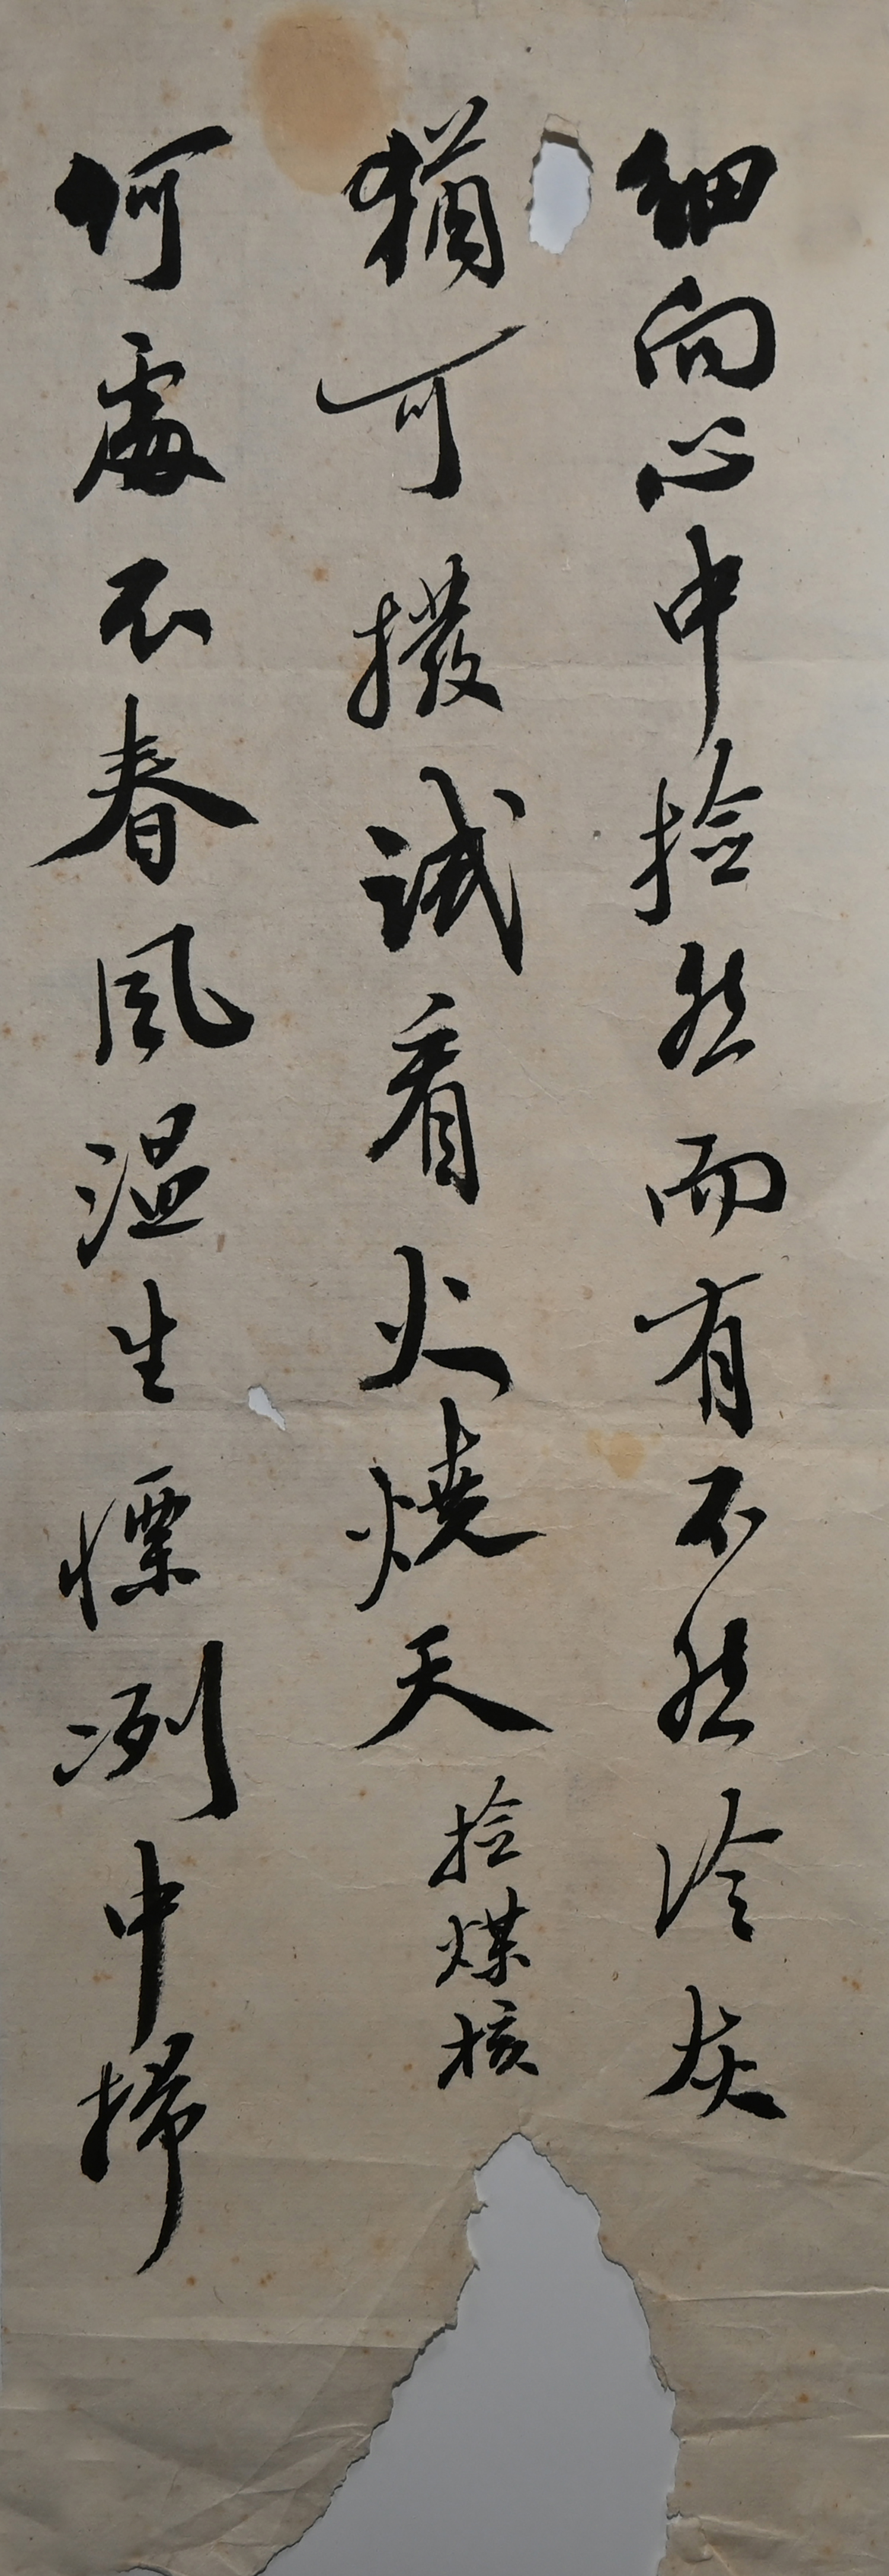 細向心中撿然而有不然冷灰
猶可撥試看火燒天撿煤核
何處不春風溫生慄冽中掃